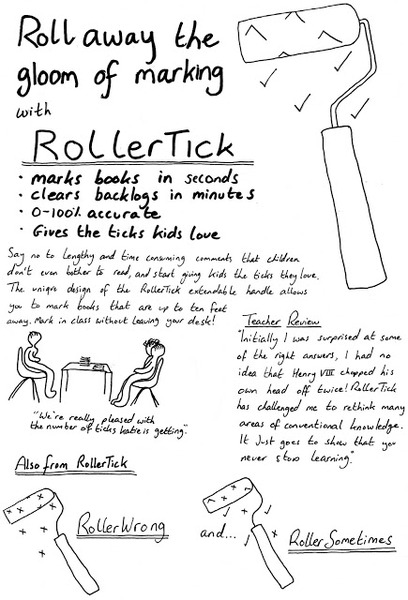 Roll away the
gloom of marking
with
RollerTick
· marks books in seconds
· clears backlogs in minutes
· 0-100% accurate
· Gives the ticks kids love
Say no to lengthy and time consuming comments that children
don't even bother to read, and start giving kids the ticks they love.
The unique design of the RollerTick extendable handle allows
you to mark books that are up to ten feet
away. Mark in class without leaving your desk!
Teacher Review
"Initially I was surprised at some
of the right answers, I had no
idea that Henry VIII chopped his
own head off twice! RollerTick
has challenged me to rethink many
areas of conventional knowledge.
It Just goes to show that you
never stop learning."
"We're really pleased with
the number of ticks Katie is getting".
Also from RollerTick
RollerWrong
and...
RollerSometimes